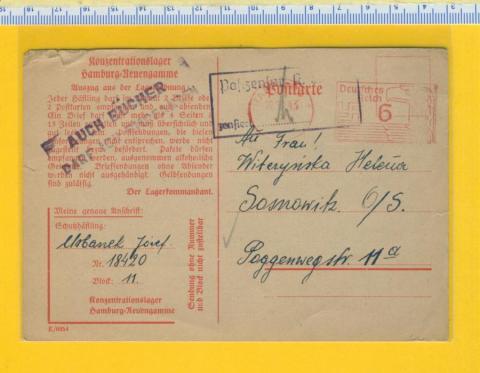 Konzentrationslager
Hamburg-Neuengamme
Auszug aus der Lagerordnung:
Jeder Häftling darf im Monat 2 Briefe oder
2 Postkarten empfangen und
Ein Brief darf
4 Seiten à
15 Zeilen
und muß übersichtlich und
gut lesbar
die diesen
nicht entsprechen, werde
nicht
befördert. Pakete dürfen
empfangen werden, ausgenommen alkoholische
Briefsendungen ohne Absender
werden nicht ausgehändigt. Geldsendungen
sind zulässig.
Der Lagerkommandant.
AUCH BÜCHER
DARF
Meine genaue Anschrift:
Schutzhäftling:
Urbanek Józef
Nr. 18420
Block: 11.
Konzentrationslager
Hamburg-Neuengamme
E/0054
Sendung ohne Nummer
und Block nicht zustellbar
Postzensur
zensiert
Postkarte
Deutsches
Reich
6
An Frau!
Witczyńska Helena
Sosnowitz O/S.
Poggenwegstr. 11a